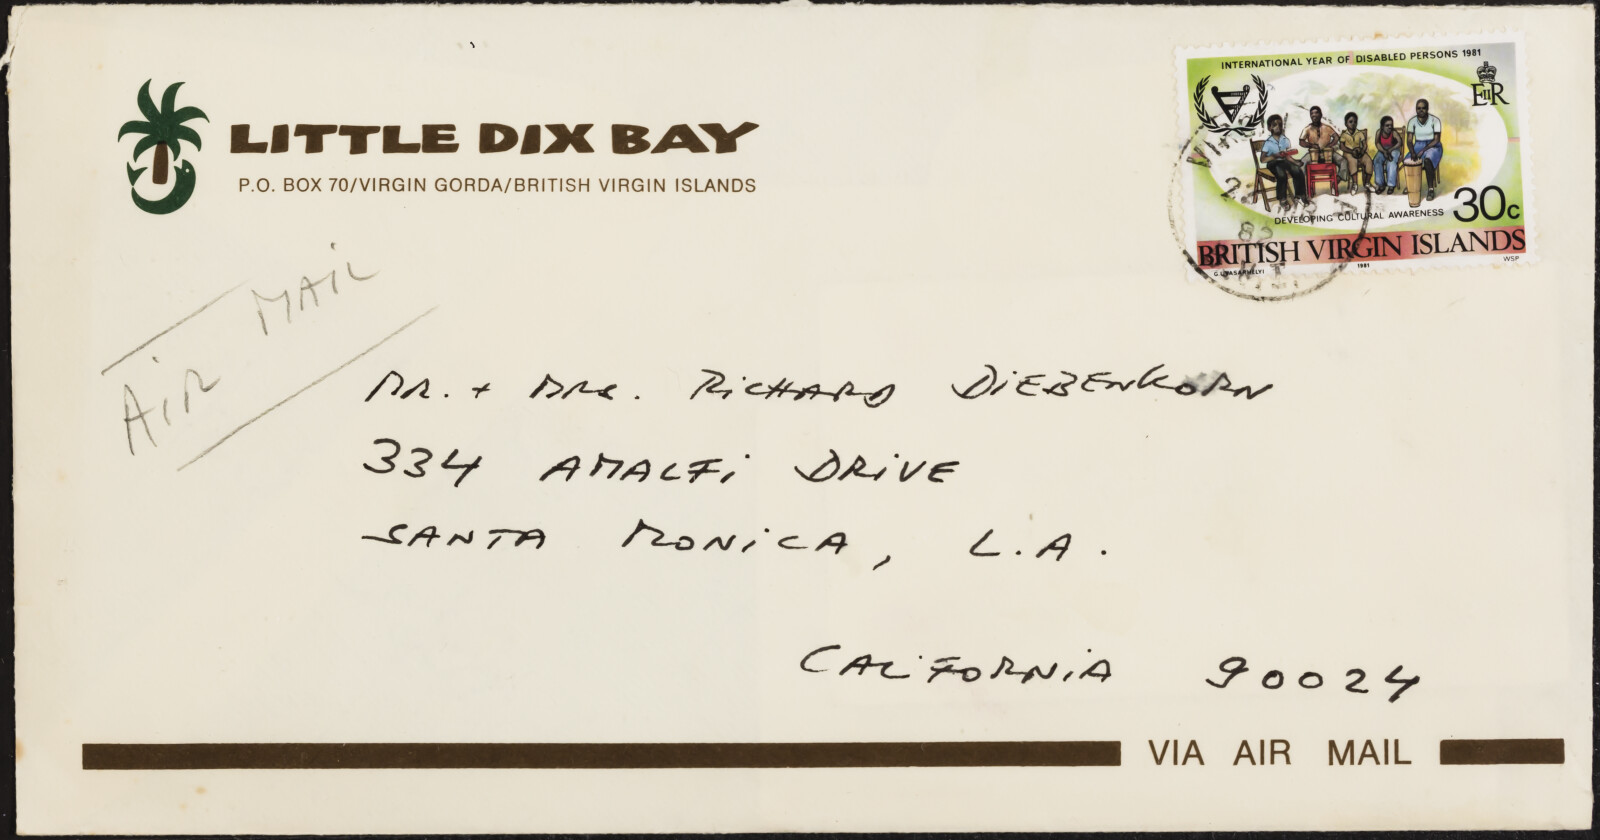 LITTLE DIX BAY
P.O. BOX 70/VIRGIN GORDA/BRITISH VIRGIN ISLANDS
INTERNATIONAL YEAR OF DISABLED PERSONS 1981
EIIR
DEVELOPING CULTURAL AWARENESS
30c
BRITISH VIRGIN ISLANDS
G. VASARHELYI
1981
WSP
AIR MAIL
MR. + MRS. RICHARD DIEBENKORN
334 AMALFI DRIVE
SANTA MONICA, L.A.
CALIFORNIA 90024
VIA AIR MAIL